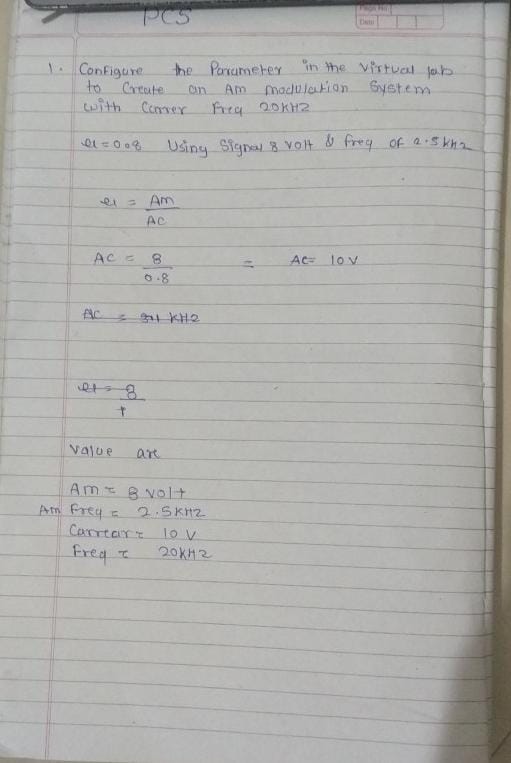 PCS
Page No.
Date
1. Configure the Parameter in the Virtual lab
to Create an Am modulation System
with Carrer Freq 20KHZ
u=0.8 Using Signal 8 volt & freq of 2.5khz
u = Am
AC
AC = 8 = AC= 10V
0.8
AC = KHZ
u = 8
Value are
Am = 8 volt
Am Freq = 2.5KHZ
Carrear = 10 V
Freq = 20KHZ